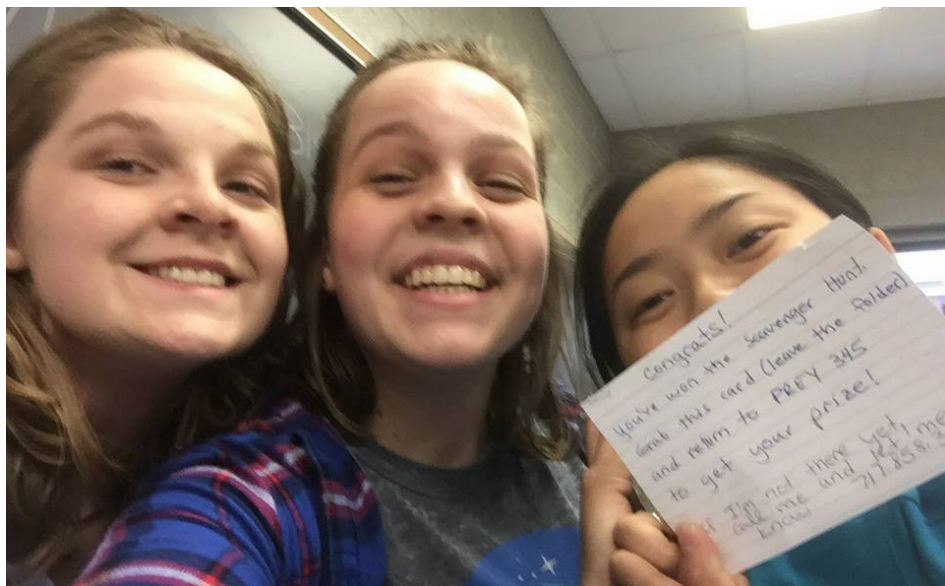 Congrats!
You've won the Scavenger Hunt.
Grab this card (leave the folder)
and return to FREY 345
to get your prize!
if I'm not there yet,
call me and let me
know 717.858.